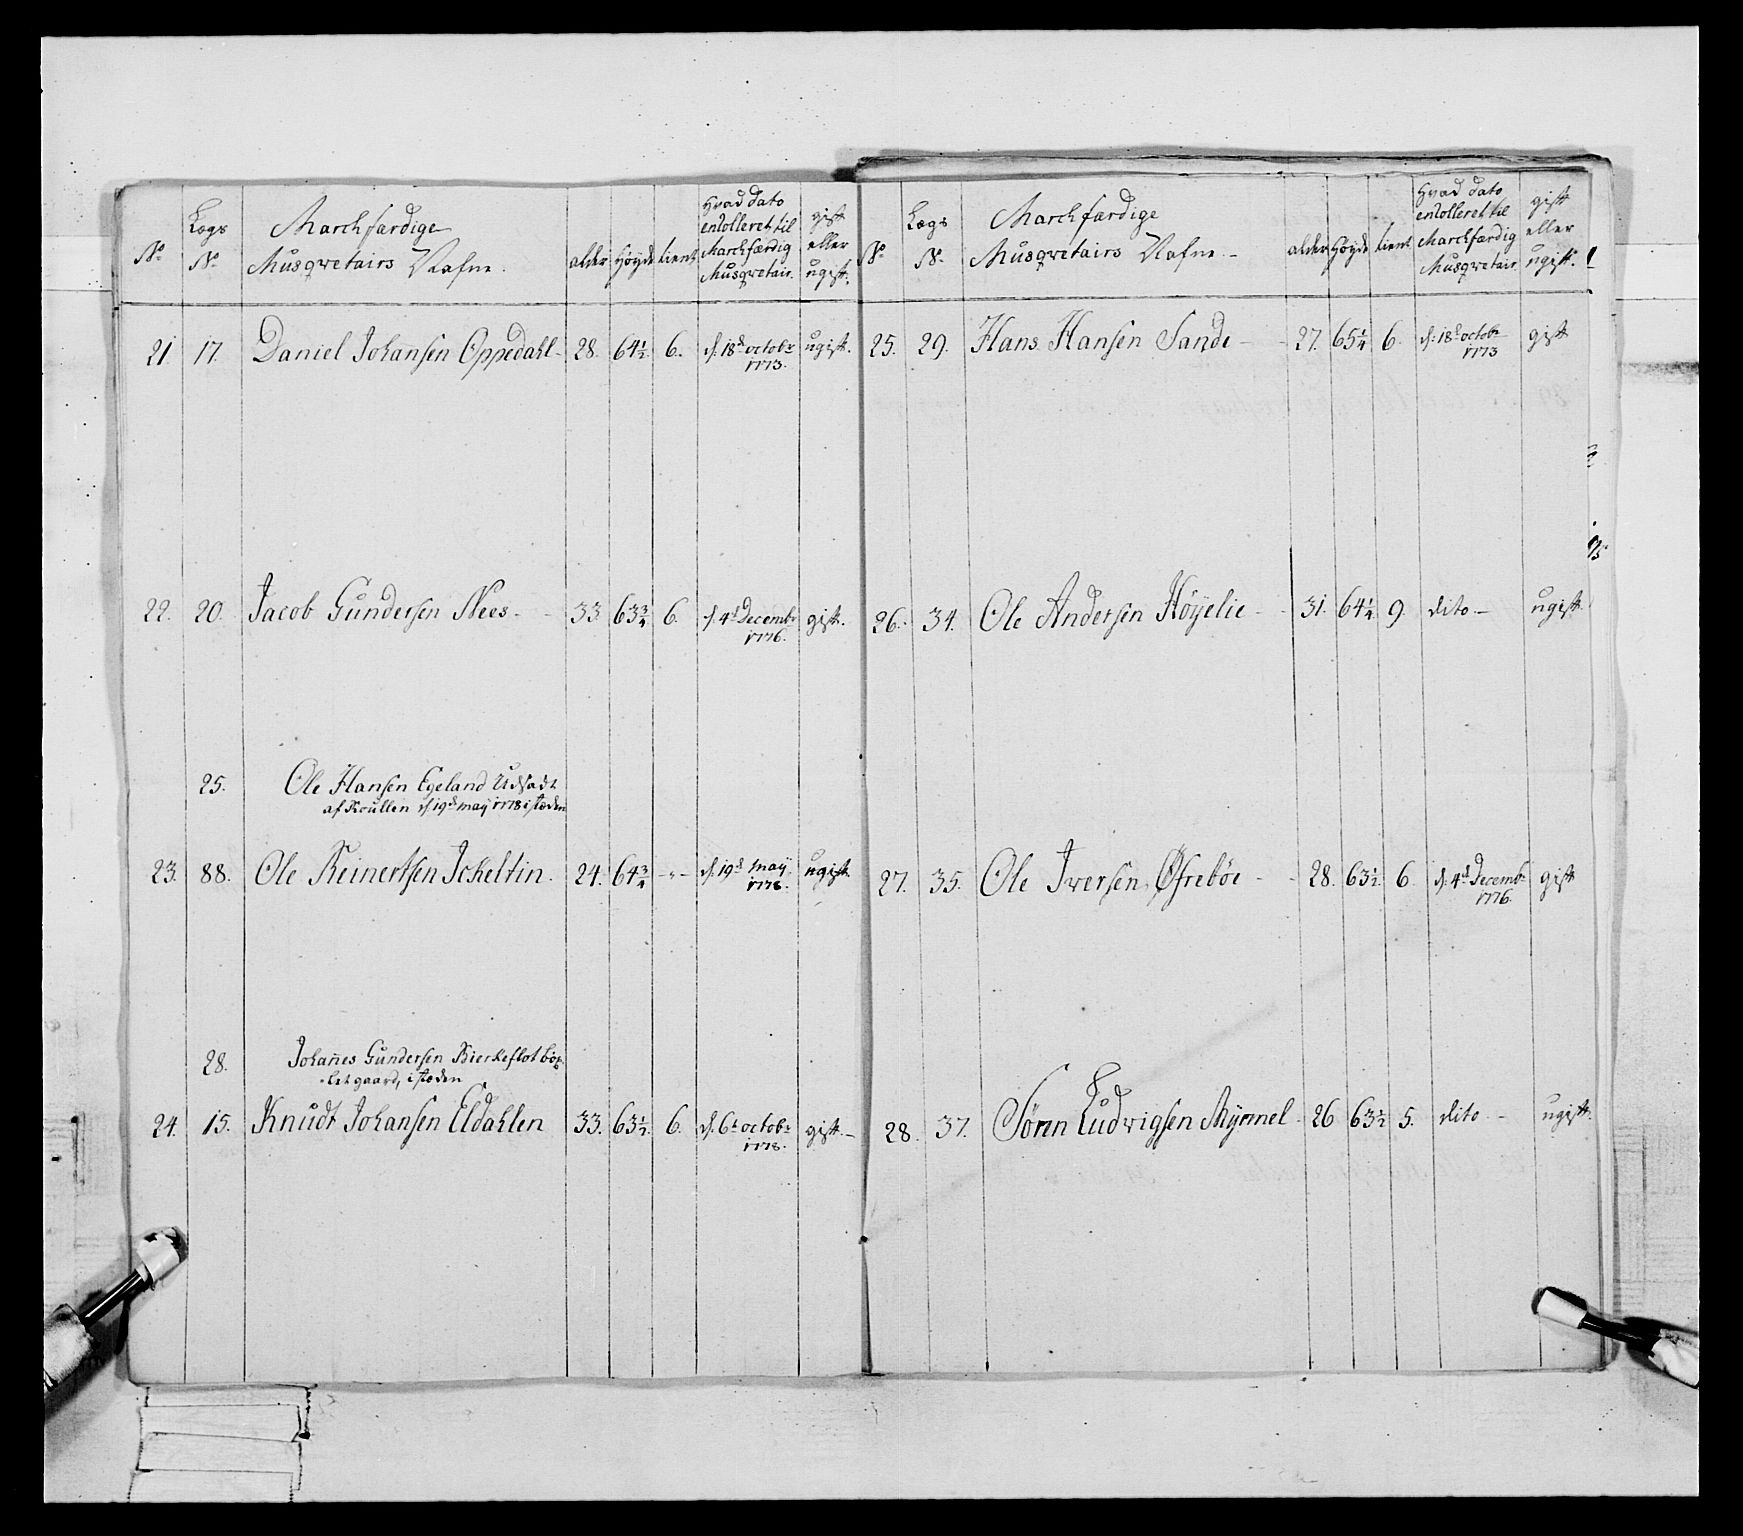 No
Lægs
No
Marchfærdige
Musqvetairs Nafne.
alder
Høyde
tient
Hvad dato
enrolleret til
Marchfærdig
Musqvetair.
gift
eller
ugift.
21 17. Daniel Johansen Oppedahl - 28. 64½ 6. d. 18d octobr 1773. ugift.
22. 20. Jacob Gundersen Nees - 33 63¾ 6. d. 4d Decembr 1776. gift.
25. Ole Hansen Egeland Udsadt
af Roullen d 19d maÿ 1778 i stæden
23. 88. Ole Reinertsen Jckeltin. 24. 64¾ - " - d. 19d maÿ 1778. ugift.
28. Johañes Gundersen Bierkeflot bor-
-tet gaard, i stæden
24. 15. Knudt Johansen Eldahlen 33. 63½ 6. d. 6t octobr 1778. gift. -
No
Lægs
No
Marchfærdige
Musqvetairs Nafne. -
alder
Høyde
tient
Hvad dato
enrolleret til
Marchfærdig
Musqvetair
gift
eller
ugift.
25. 29. Hans Hansen Sande - 27. 65¼ 6. d. 18d octobr 1773 gift
26. 34. Ole Andersen Höÿelie - 31. 64¼ 9 dito - ugift.
27. 35. Ole Iversen Øfreböe - 28. 63½ 6. d. 4d Decembr 1776. gift
28. 37. Sören Ludvigsen Mÿrmel - 26 63½ 5. dito - ugift.